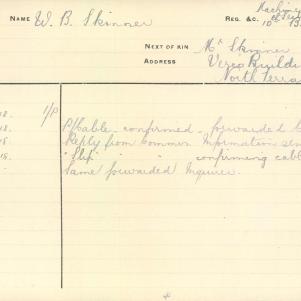 NAME W. B. Skinner
REG. &C. Machine
10th
NEXT OF KIN Mr Skinner
ADDRESS Verco Build
North Terra
18. 1/P P/Cable confirmed forwarded
18. Reply from Commr Information
18. "Slip" " " confirming cabl
18. Same forwarded Inquirer.